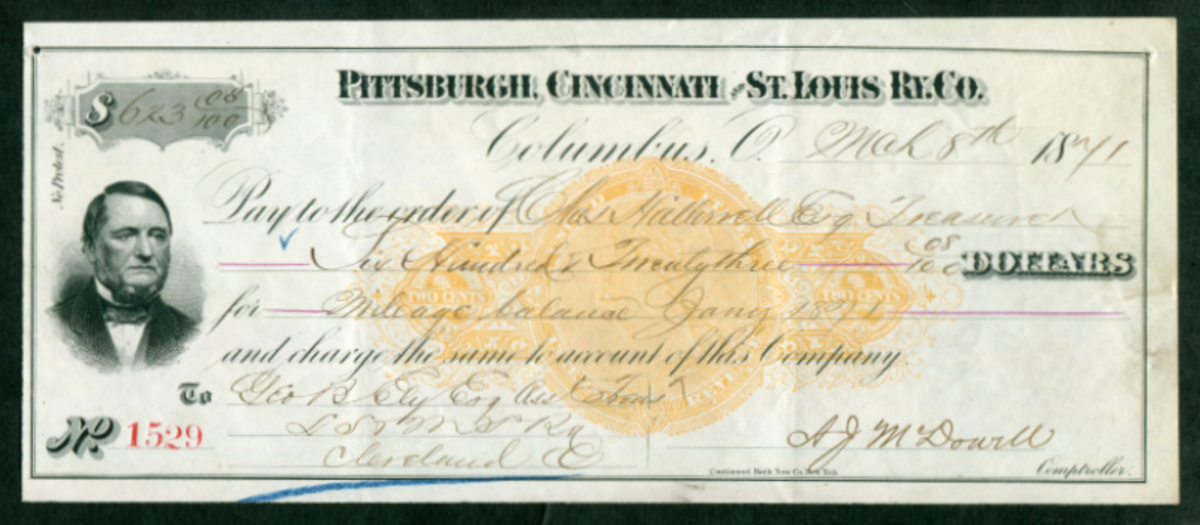 PITTSBURGH, CINCINNATI AND ST. LOUIS RY. CO.
$ 623 08/100
Columbus, O. Mch 8th 1871
No Protest.
Pay to the order of Chas Esq Treasurer
Six Hundred & Twentythree 08/100 DOLLARS
for Mileage balance Jany 1871
TWO CENTS TWO CENTS
and charge the same to account of this Company
To Geo B Ely Esq Asst Treas
No. 1529 L S & M S Ry
A J McDowell
Cleveland O
Continental Bank Note Co. New York
Comptroller.